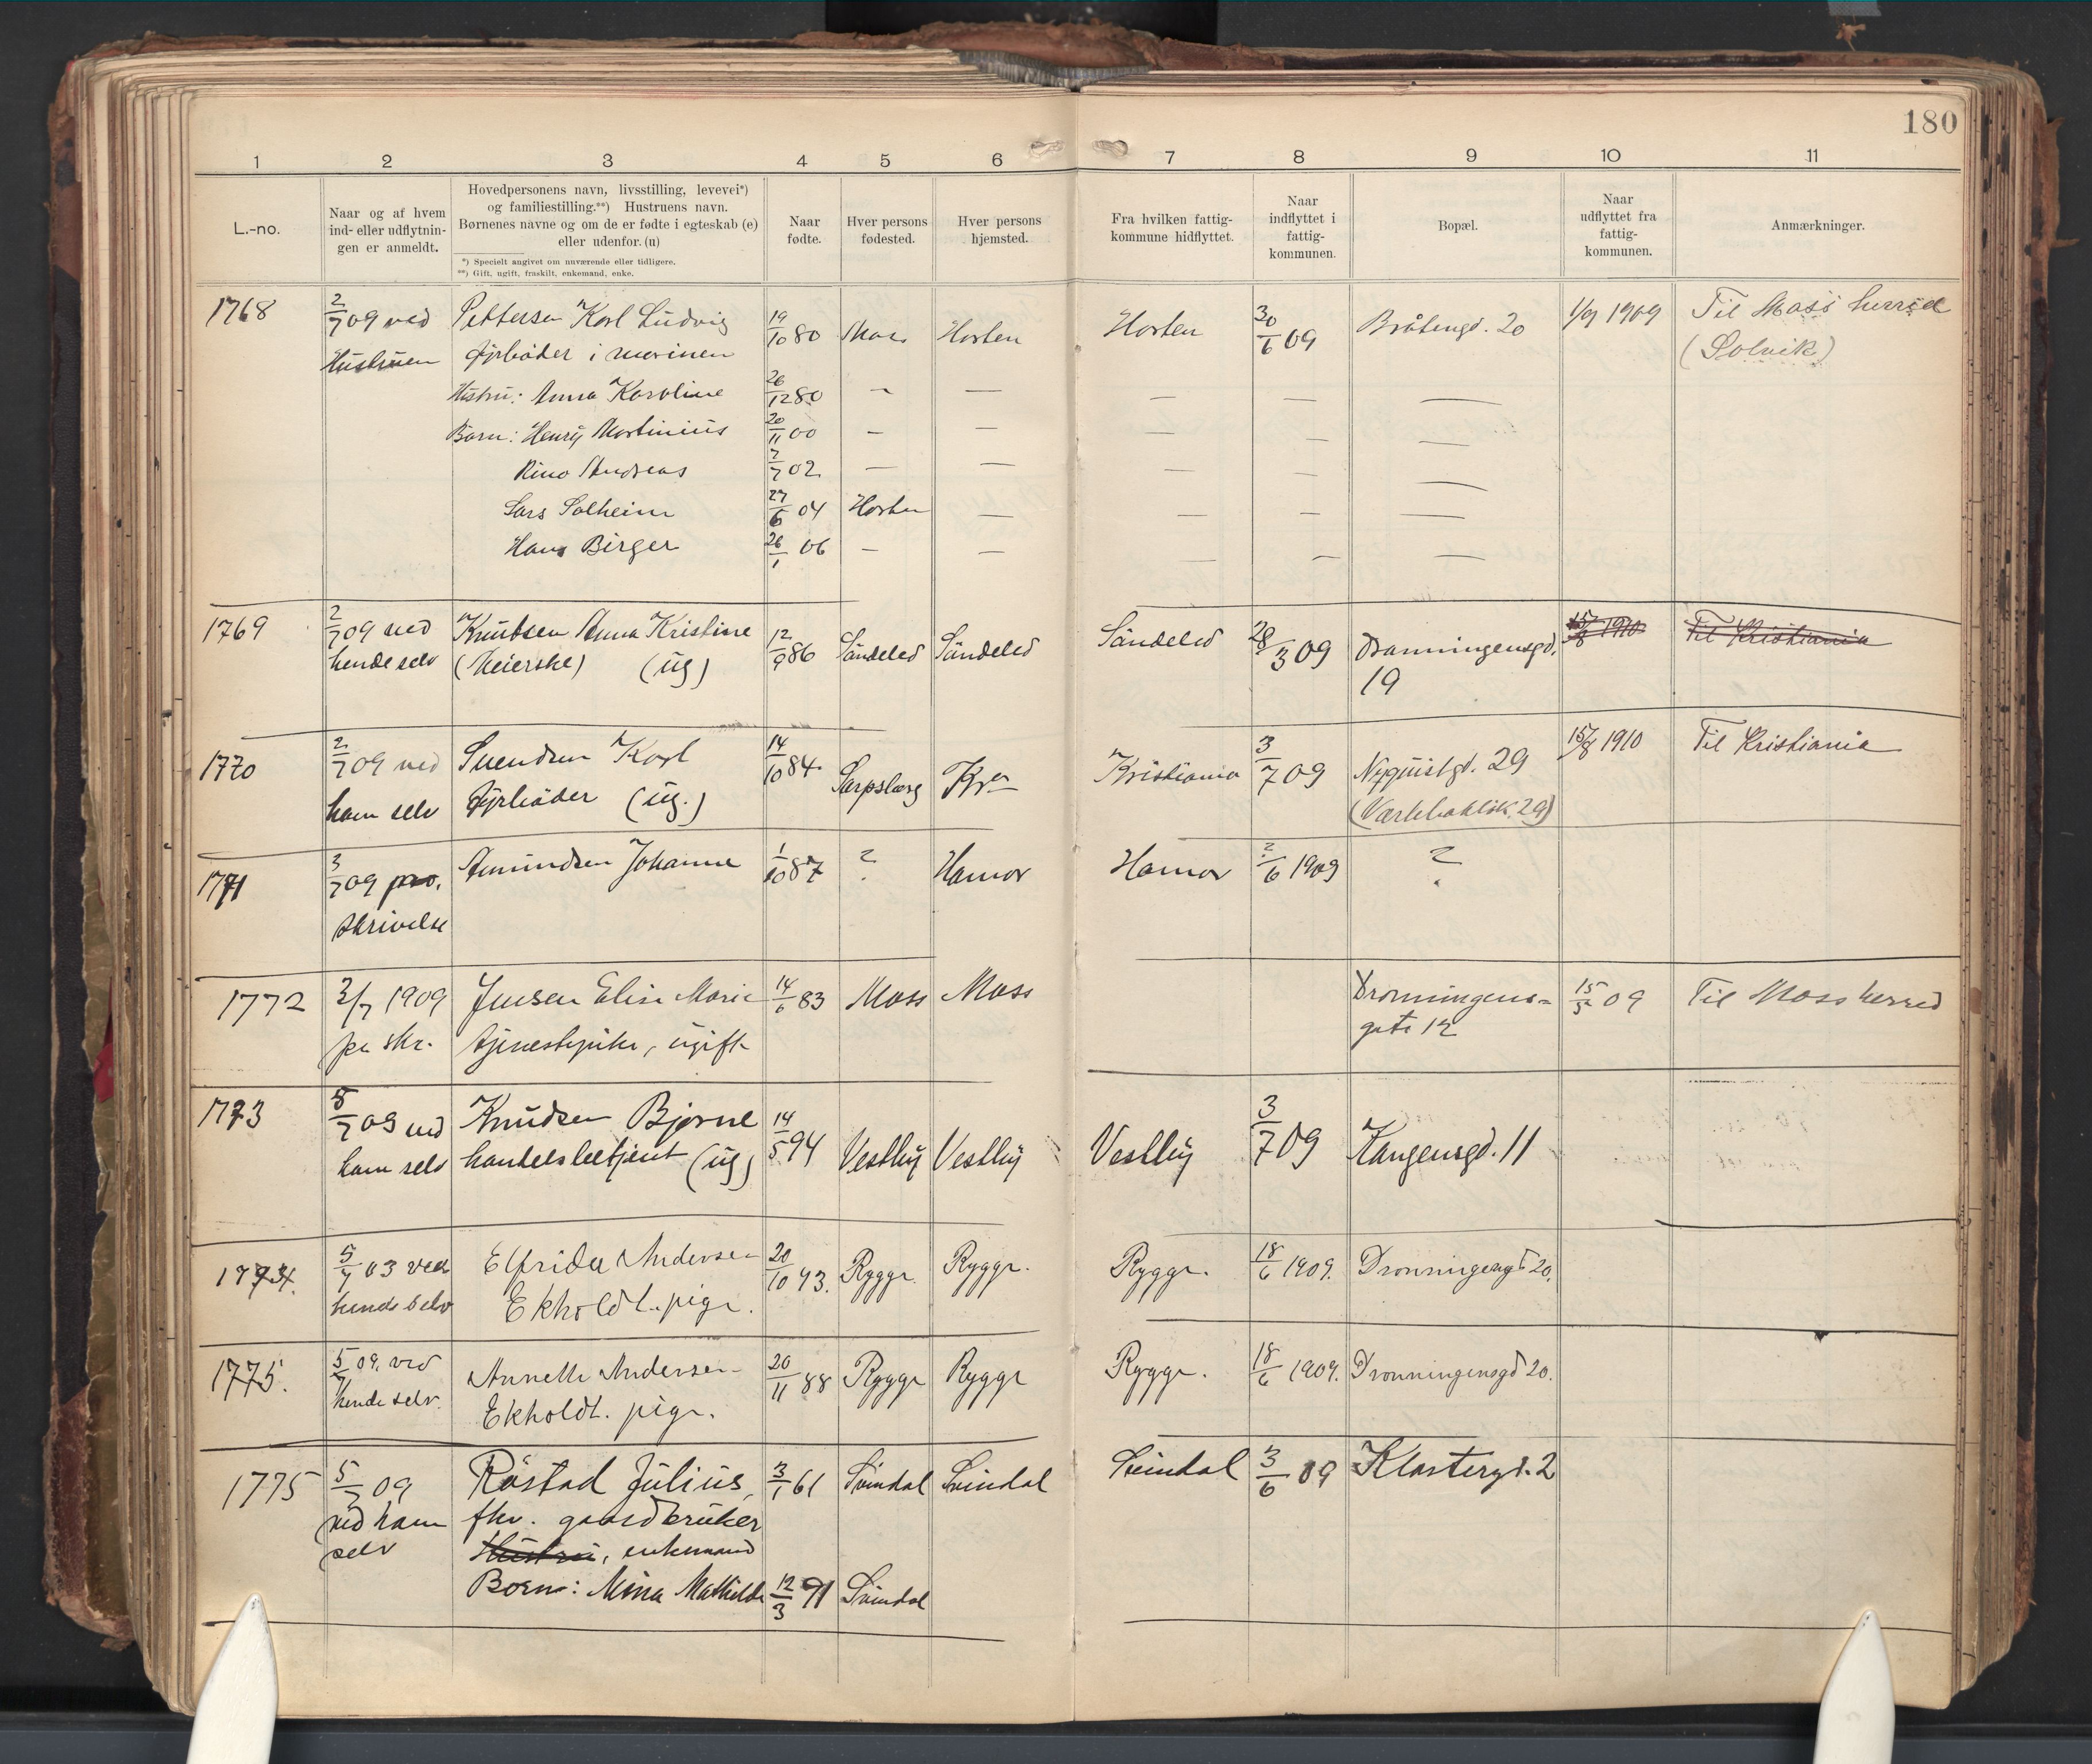 180
1 2 3 4 5 6 7 8 9 10 11
L.-no.
Naar og af hvem
ind- eller udflytnin-
gen er anmeldt.
Hovedpersonens navn, livsstilling, levevei*)
og familiestilling.**) Hustruens navn.
Børnenes navne og om de er fødte i egteskab (e)
eller udenfor. (u)
*) Specielt angivet om nuværende eller tidligere.
**) Gift, ugift, fraskilt, enkemand, enke.
Naar
fødte.
Hver persons
fødested.
Hver persons
hjemsted.
Fra hvilken fattig-
kommune hidflyttet.
Naar
indflyttet i
fattig-
kommunen.
Bopæl.
Naar
udflyttet fra
fattig-
kommunen.
Anmærkninger.
1768 2/7 09 ved Pettersen Karl Ludvig 19/10 80 Moss Horten Horten 30/6 09 Bråtengd. 20 1/9 1909 Til Moss herred
Hustruen fyrbøder i marinen (Solvik)
Hustru: Anna Karoline 26/12 80 – – – – –
Børn: Henry Martinius 20/11 00 – – – – –
Andreas 2/7 02 – – – – –
Lars Solheim 27/6 04 Horten – – – –
Hans Birger 26/1 06 – – – – –
1769 2/7 09 ved Knutsen Anna Kristine 12/9 86 Söndeled Söndeled Söndeled 28/3 09 Dronningensgd. 15/8 1910 Til Kristiania
hende selv (Meierske) (ug) 19
1770 2/7 09 ved Svendsen Karl 14/10 84 Sarpsborg Kra Kristiania 3/7 09 Nyquistgd. 29 15/8 1910 Til Kristiania
ham selv fyrbøder (ug.) (Værlebaklsk. 29)
1771 3/7 09 pr. Amundsen Johanne 1/10 87 ? Hamar Hamar ?/6 1909 ?
skrivelse
1772 3/7 1909 Jensen Elise Marie 14/6 83 Moss Moss Dronningens- 15/5 09 Til Moss herred
pr skr. tjenestepike, ugift gate 12
1773 5/7 09 ved Knudsen Bjarne 14/5 94 Vestby Vestby Vestby 3/7 09 Kongensgd. 11
ham selv handelsbetjent (ug)
1774. 5/7 03 ved Elfrida Andersen 20/10 93. Rygge. Rygge. Rygge. 18/6 1909. Dronningengd 20.
hende selv Ekholdt. pige.
1775. 5/7 09. ved Annette Andersen 20/11 88 Rygge Rygge Rygge. 18/6 1909. Dronningensgd 20.
hende selv. Ekholdt. pige.
1775 5/7 09 Röstad Julius, 3/1 61 Svindal Svindal Svindal 3/6 09 Klostergd. 2
ved ham fhv. gaardbruker
selv Hustru, enkemand
Børn: Mina Mathilde 12/3 91 Svindal